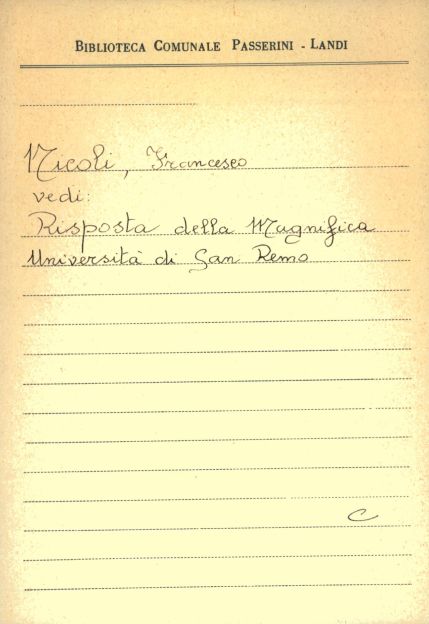 BIBLIOTECA COMUNALE PASSERINI - LANDI
Nicoli, Francesco
vedi:
Risposta della Magnifica
Università di San Remo
C